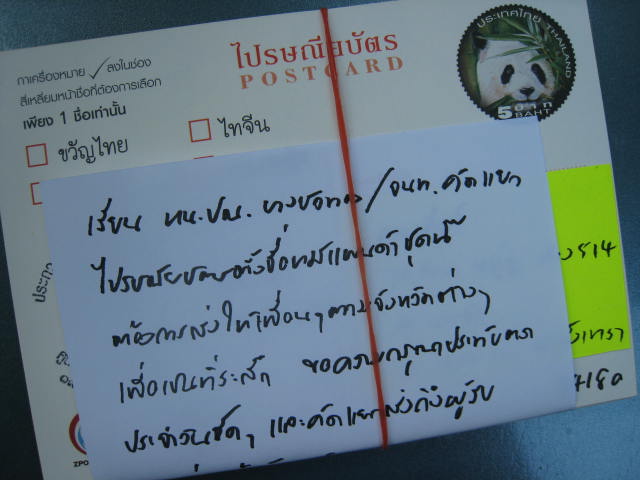 ไปรษณียบัตร
POSTCARD
ประเทศไทย THAILAND
5 บาท BAHT
กาเครื่องหมาย ✓ ลงในช่อง
สี่เหลี่ยมหน้าชื่อที่ต้องการเลือก
เพียง 1 ชื่อเท่านั้น
ขวัญไทย
ไทจีน
514
เรียน หน.ปณ. /จนท.คัดแยก
ไปรษณียบัตรตั้งชื่อหมีแพนด้าชุดนี้
ต้องการส่งให้เพื่อนๆตามจังหวัดต่างๆ
เพื่อเป็นที่ระลึก ขอความกรุณาประทับตรา
ประจำวันชัดๆ และคัดแยกส่งถึงผู้รับ